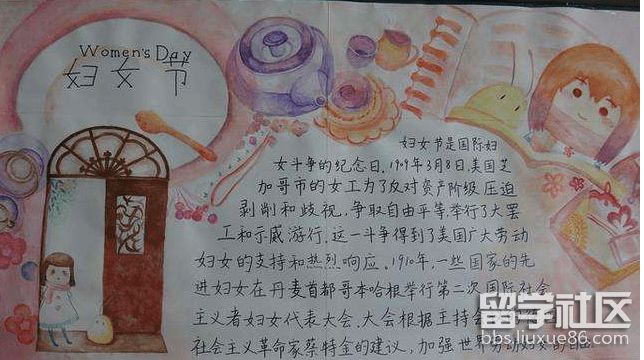 Women's Day
妇女节
妇女节是国际妇
女斗争的纪念日。1909年3月8日,美国芝
加哥市的女工为了反对资产阶级压迫
剥削和歧视,争取自由平等,举行了大罢
工和示威游行。这一斗争得到了美国广大劳动
妇女的支持和热烈响应。1910年,一些国家的先
进妇女在丹麦首都哥本哈根举行第二次国际社会
主义者妇女代表大会。大会根据主持会
社会主义革命家蔡特金的建议,加强世界劳动妇女的
留学社区
bbs.liuxue86.com